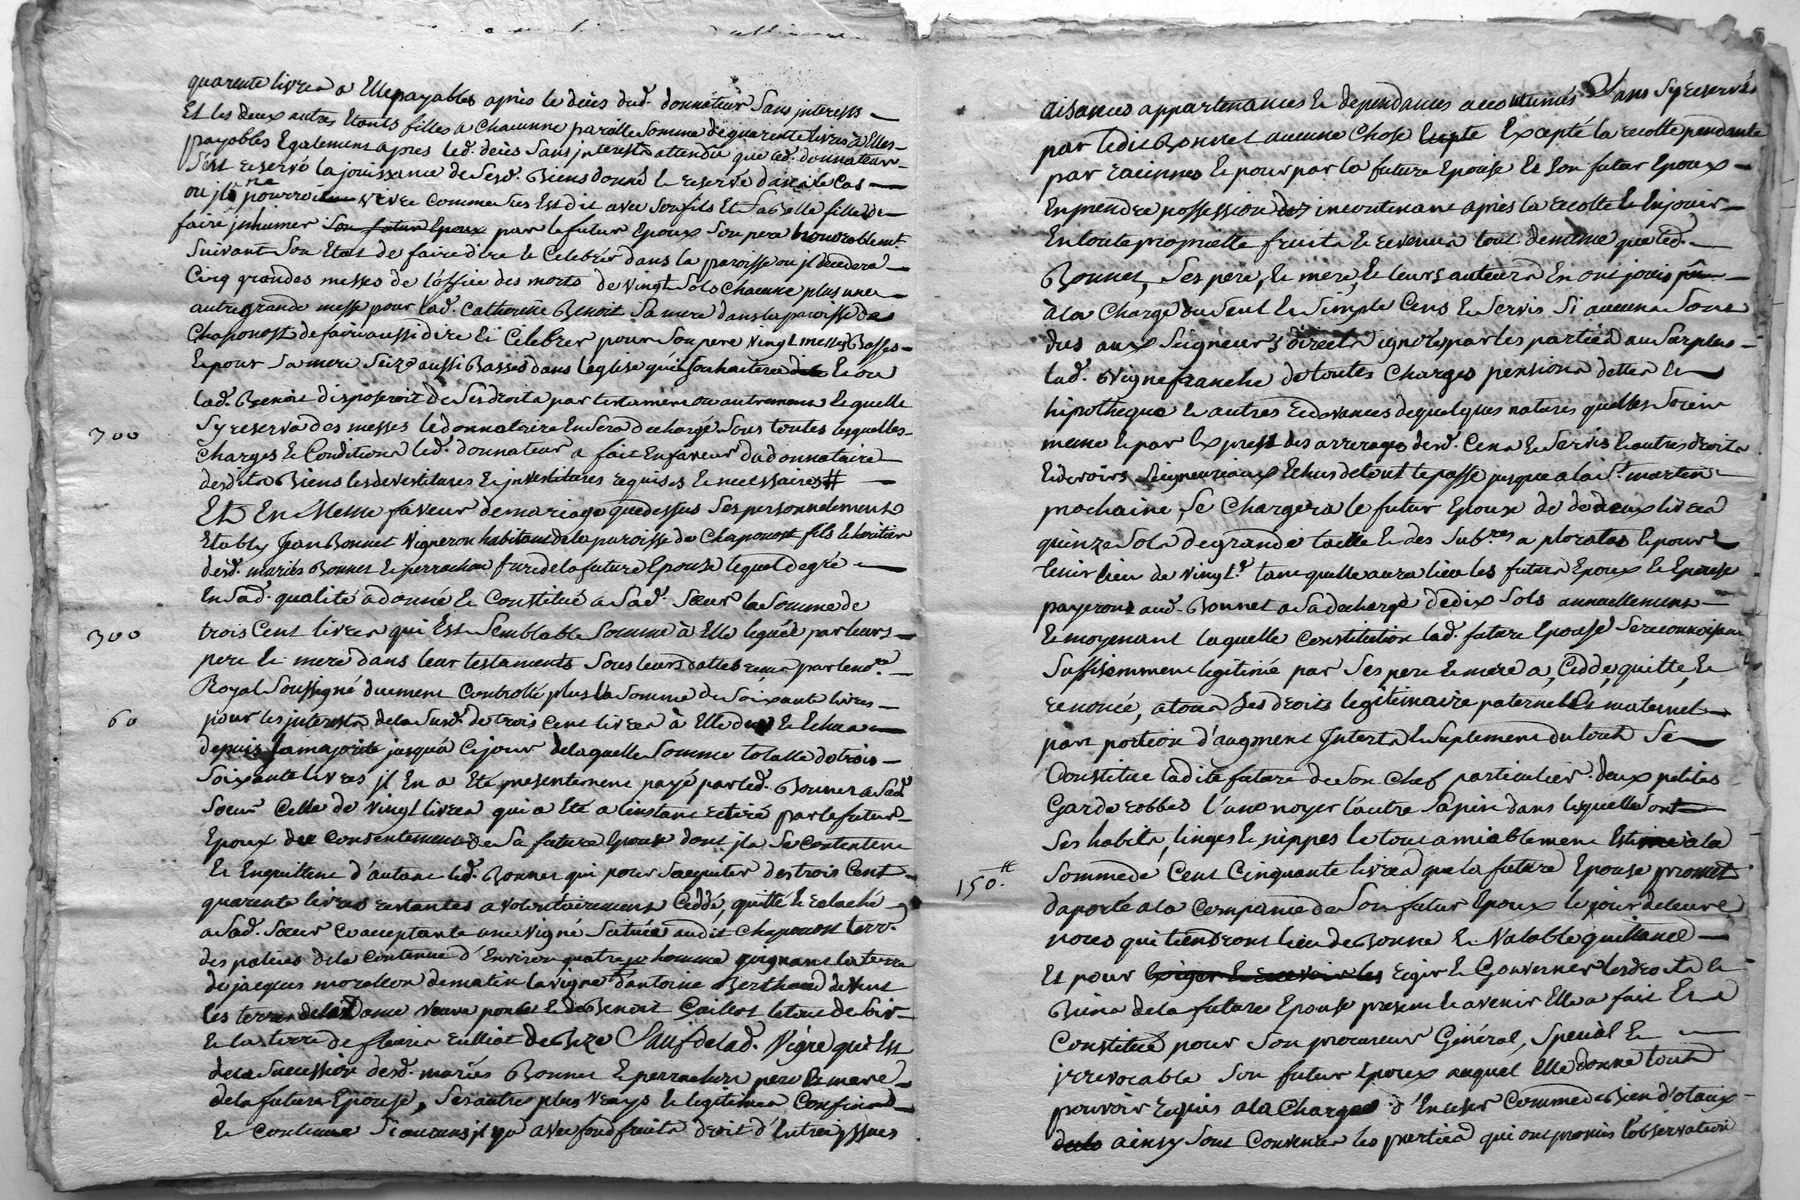 quarente livres a Elle payables après le déces dud. donnateur Sans interests
Et les deux autres Etants filles a Chacunne pareille Somme de quarente livres à Elles
payables Egalement apres led. décès Sans interests attendu que led. donnateur
S'est reservé la jouissance de Sesd. Biens donné & reservé dans le Cas
ou jls ne pourroient vivre comme Il Est dit avec Son fils Et Sa Belle fille de
faire jnhumer Son futur Epoux par le futur Epoux Son pere honorablemt.
Suivant Son Etat de faire dire & Celebrer dans la paroisse ou jl decedera
Cinq grandes messes de l'office des morts de vingt Sols Chacune plus une
autre grande messe pour lad. Catherine Benoit Sa mere dans la paroisse de
Chaponost de faire aussi dire & Célébrer pour Son pere vingt messes Basses
& pour Sa mere Seize aussi Basses dans l'eglise qu'il Souhaitera & ou
lad. Benoit disposeroit de Ses droits par testament ou autrement & quelle
Sy reserva des messes le donnataire En Sera dechargé Sous toutes lesquelles
700
Charges & Conditions led. donnateur a fait En faveur du donnataire
desdits Biens les devestitures & jnvestitures requises & necessaires #
Et En Meme faveur de mariage que dessus S'es personnelement
Etably Jean Bonnet Vigneron habitant de la paroisse de Chaponost fils & heritier
desd. mariés Bonnet & perrachon frere de la future Epouse lequel de gré
En Sad. qualité a donné & Constitué a Sad. Sœur la Somme de
300
trois Cent livres qui Est Semblable Somme à Elle leguée par leurs
pere & mere dans leur testaments Sous leurs dattes reçus par le nore.
Royal Soussigné duement Controllé plus la Somme de Soixante livres
60
pour les jnterests de la Susd. de trois Cent livres à Elle dus & Echus
depuis Sa majorité jusqu'à Ce jour de laquelle Somme totalle de trois
Soixante livres jl En a Eté presentement payé par led. Bonnet a Sad.
Sœur Celle de Vingt livres qui a Eté a l'instant retiré par le futur
Epoux du Consentement de Sa future Epouse dont jls Se Contentent
& En quittent d'autant led. Bonnet qui pour S'acquiter des trois Cent
quarente livres restantes a volontairement Ceddé, quitté & relaché
a Sad. Sœur Co acceptante une Vigne Scituée audit Chaponost terr.
des palices de la Contenue d'Environ quatre homme joignant la terre
de jacques morellon de matin la vigne d'antoine Berthaud de vent
les terres de la Dame veuve & de Benoit Caillot & de Soir
& la terre de fleurie rulliat de Bize Sauf de lad. Vigne qui Est
de la Succession desd. mariés Bonnet & perrachon pere & mere
de la future Epouse, Ses autres plus vrays & legitimes Confins
& Contenue Si aucuns jl y a avec fond fruits droit d'Entrée jssues
aisances appartenances & dependances accoutumés Sans Sy reserver
par ledit Bonnet aucune Chose Excepté la recolte pendante
par racinnes & pour par la future Epouse Et Son futur Epoux
En prendre possession incontinant après la recolte & En jouir
En toute proprietté fruits & revenus tout de même que led.
Bonnet, Ses pere, & mere, & leurs auteurs En ont jouis
à la Charge du Seul & Simple Cens & Servis Si aucuns Sont
dus aux Seigneurs directs ignorés par les parties au Surplus
lad. Vigne franche de toutes Charges pensions dettes &
hipotheque & autres redevances de quelques natures quelles Soient
meme & par Exprest des arrerages desd. Cens & Servis & autres droits
& devoirs Seigneuriaux Echus de tout le passé jusque a la St. martin
prochaine, Se Chargera le futur Epoux de deux livres
quinze Sols de grande taille & des Subres a plorates & pour
tenir lieu de Vingt. tant quelle aura lieu les futurs Epoux & Epouse
payeront aud. Bonnet a Sa decharge de dix Sols annuellement
& moyenant laquelle Constitution lad. future Epouse Se reconnoissant
Suffisemment legitimée par Ses pere & mere a, Ceddé, quitté, &
renoncé, a tous Ses droits legitimaire paternel & maternel
part portion d'augment Jnterts & Suplement du tout Se
Constitue ladite future de Son Chef particulier deux petites
Garde robbes l'une noyer l'autre Sapin dans lesquelles Sont
Ses habits, linges & nippes le tout amiablement Estimé à la
150.#
Somme de Cent Cinquante livres que la future Epouse promet
d'aporté a la Compagnie de Son futur Epoux le jour de leurs
noces qui tiendront lieu de Bonne & Valable quittance
Et pour Exiger & recevoir les regir & Gouverner les droits &
Biens de la future Epouse present & avenir Elle a fait Et
Constitué pour Son procureur Général, Special &
jrrevocable Son futur Epoux auquel Elle donne tout
pouvoir requis a la Charge d'En user Comme de Bien d'otaux
ainsy Sont Convenus les parties qui ont promis l'observation